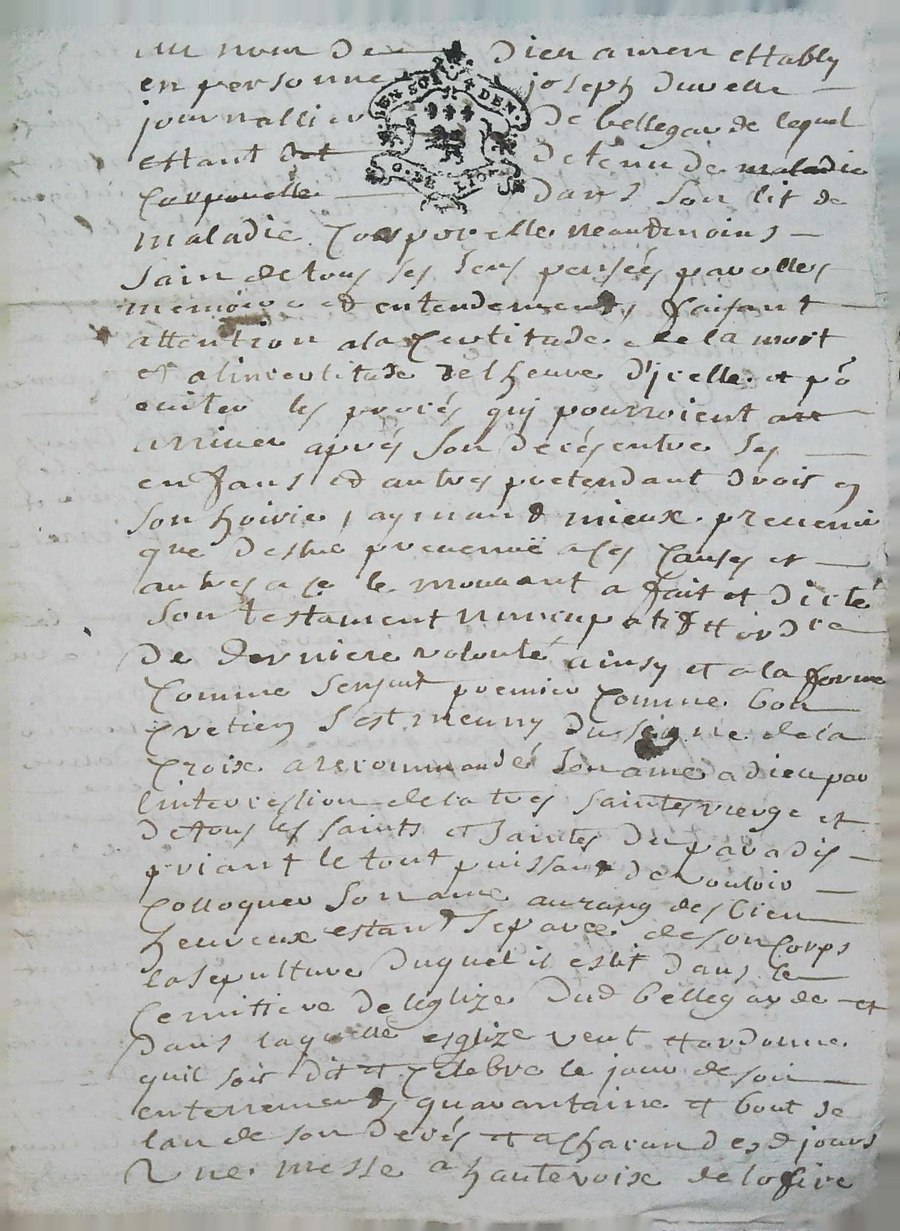 au nom de Dieu amen estably
en personne joseph duvelle
journallier de bellegarde lequel
estant det detenu de maladie
Corporelle dans son lit de
maladie Corporelle neaudmoins
sain de tous ses sens pensées parolles
memoire et entendement, faisant
attention ala Certitude de la mort
et alincertitude de lheure d'jcelle et po
eviter les procés quj pourroient arr
arriuer aprés son decés entre ses
enfans et autres pretendant droit en
son hoirie, aymant mieux preuenir
que destre preuenuë a ses Causes et
autres a ce le mouuant a fait et dicté
son testament nuncupatif et ordre
de derniere volonté ainsy et ala forme
Comme sensuit premier Comme bon
Cretien sest meuny du signe de la
Croix a recommandé son ame a dieu par
lintercession de la tres sainte vierge et
de tous les saints et saintes du paradis
priant le tout puissant de vouloir
Colloquer son ame au rang des bien
heureux estant separée de son Corps
la sepulture duquel il eslit dans le
Cemittiere de leglize dud bellegarde et
dans laquelle esglize veut et ordonne
quil soit dit et Celebre le jour de son
enterrement, quarantaine et bout de
lan de son decés et a Chacun desd jours
Une messe a hautevoix de lofice